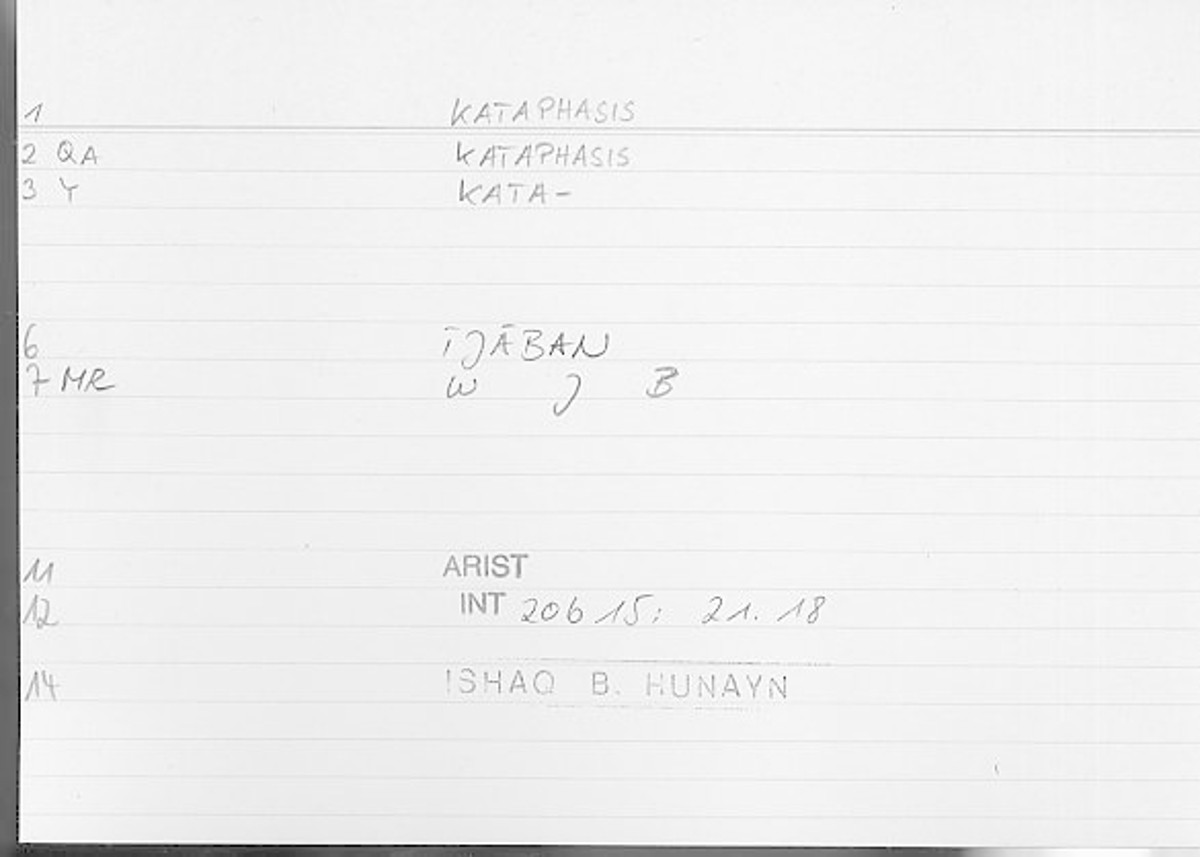 1 KATAPHASIS
2 QA KATAPHASIS
3 Y KATA-
6 ĪJĀBAN
7 MR W J B
11 ARIST
12 INT 206 15; 21. 18
14 ISHAQ B. HUNAYN